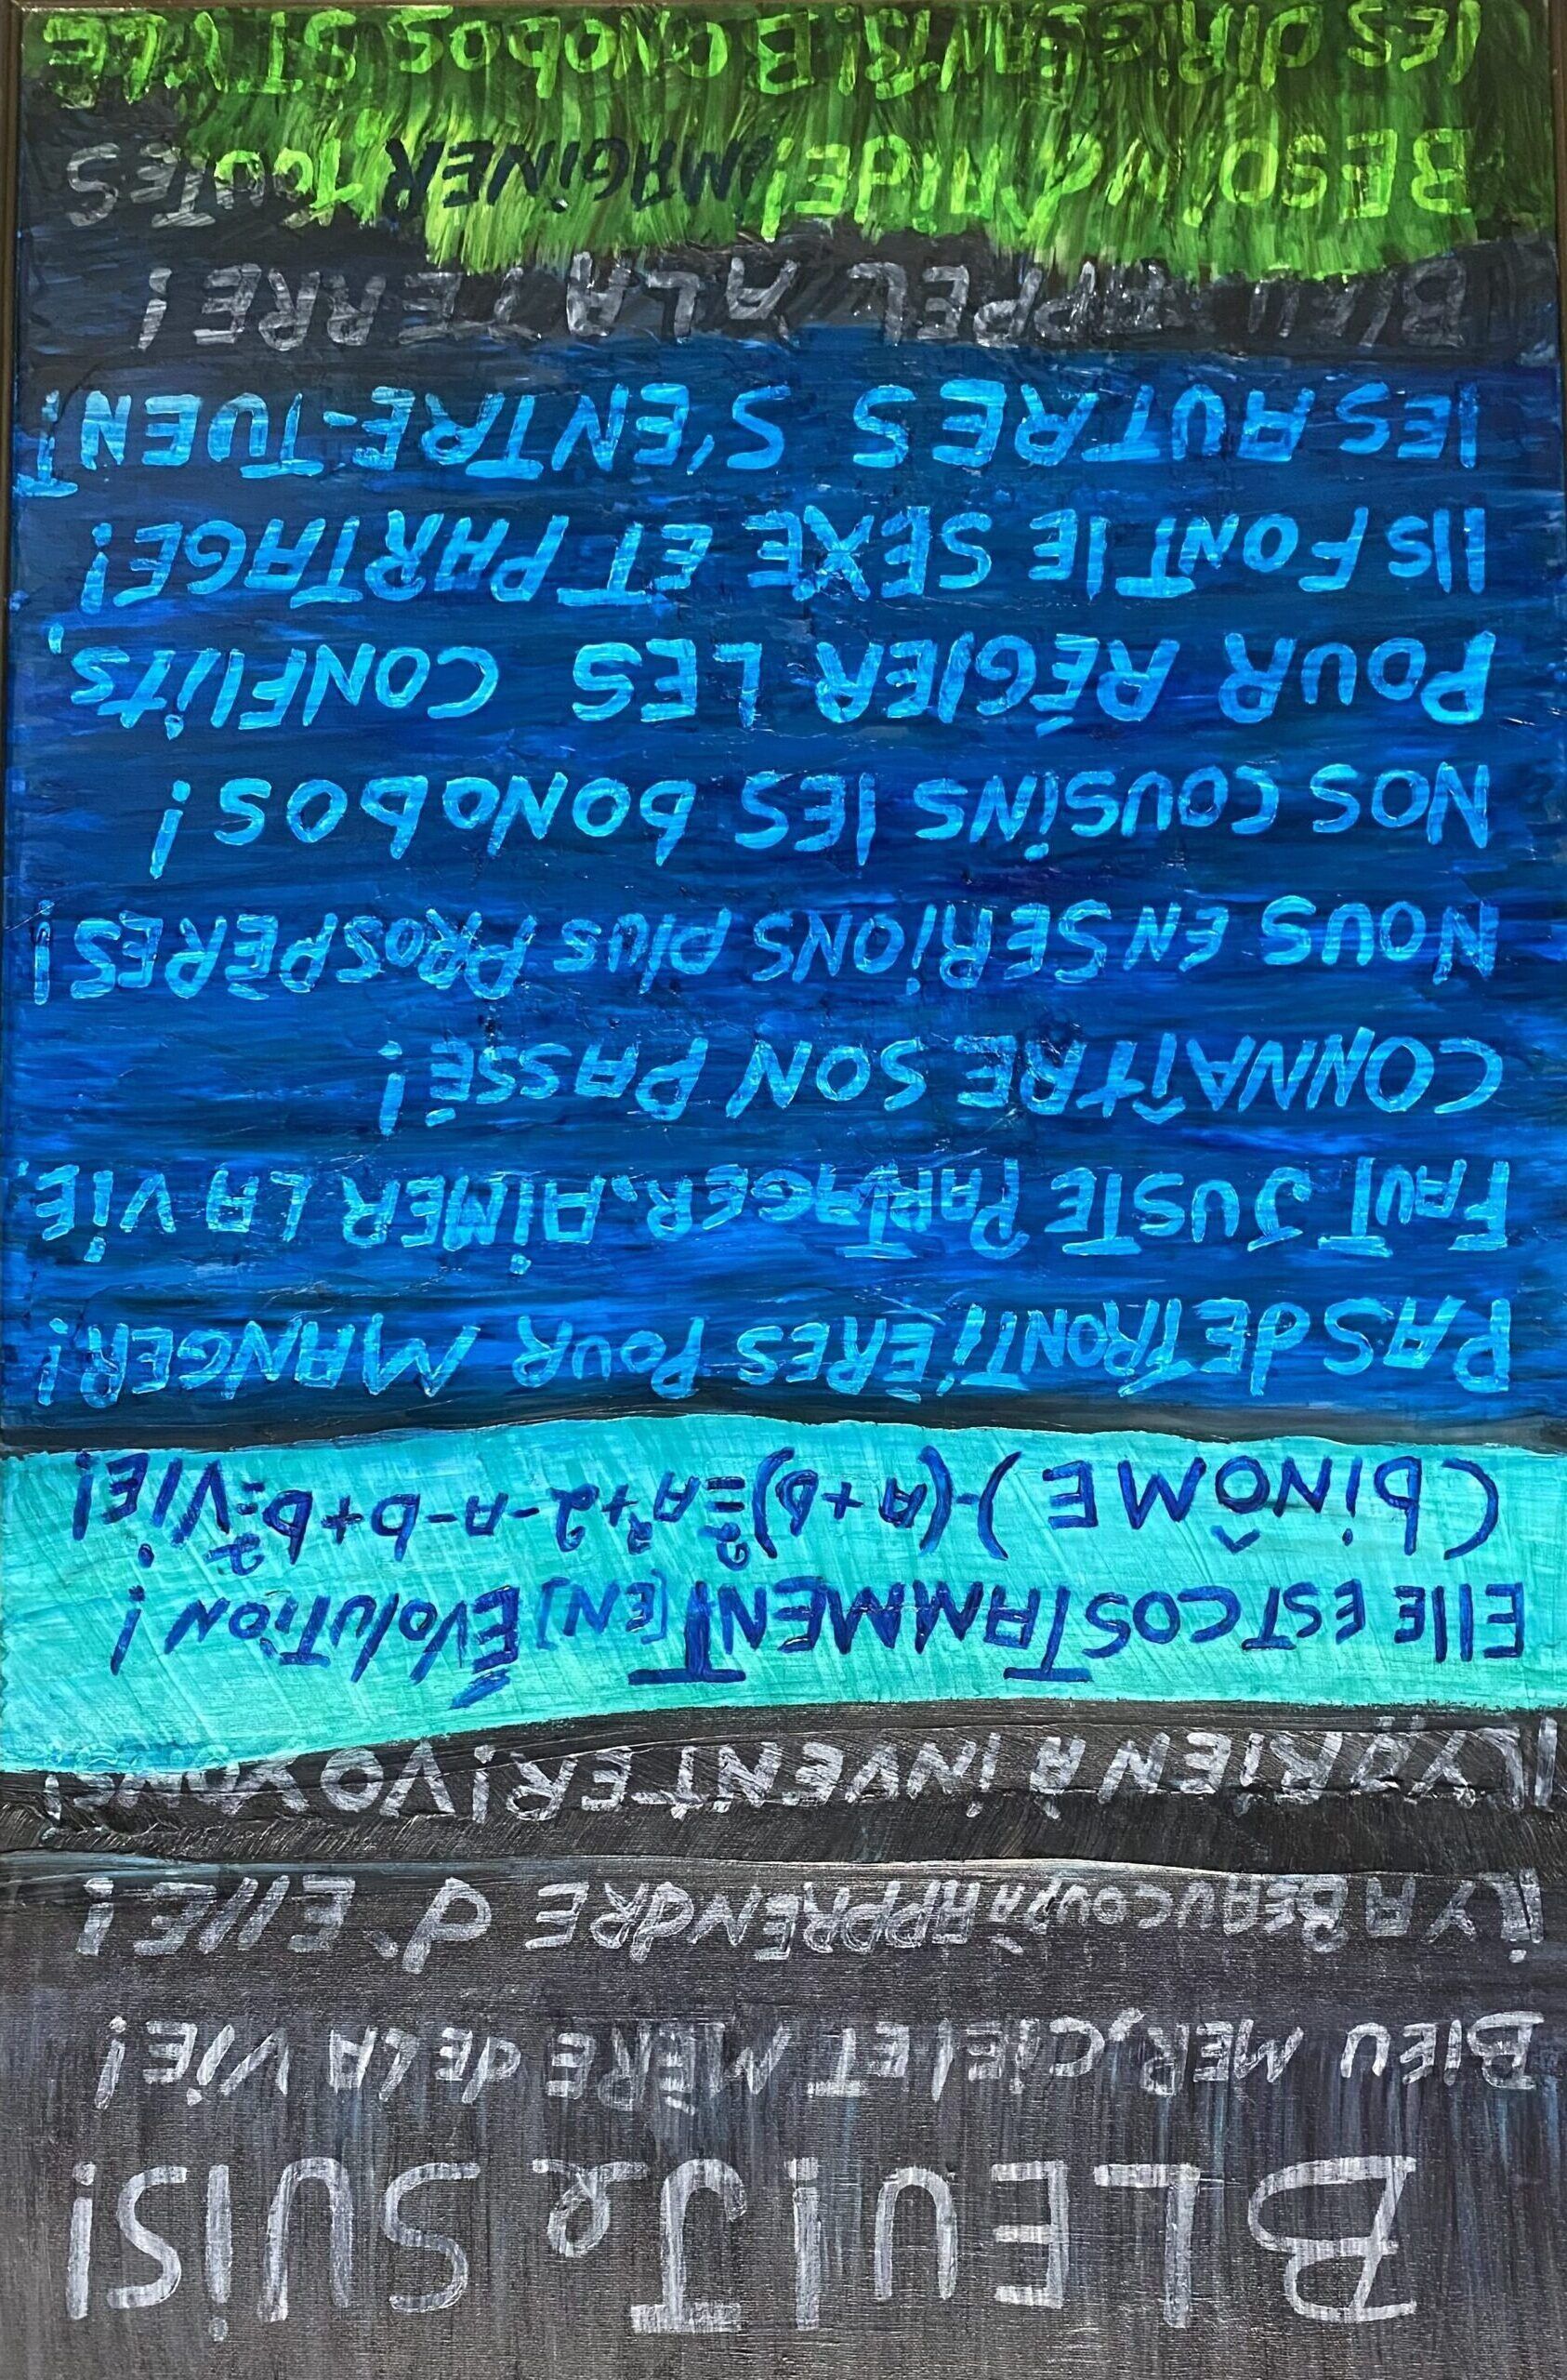 BLEU! Je SUiS!
BlEU MER, CiEl ET MÈRE dE LA ViE!
iL Y A BEAUCOUP À APPRENDRE d'EllE!
IL Y A RiEN À iNVENTER! VOYONS!
EllE EST COSTAMMENT [EN] ÉVOlUTiON!
(biNÔME)-(a+b)²=a²+2-a-b+b²=VIE!
PAS dE FRONTiÈRES POUR MANGER!
FAUT JUSTE PARTAGER. AiMER LA ViE,
CONNAÎTRE SON PASSÉ!
NOUS EN SERiONS PlUS PROSPÈRES!
NOS COUSiNS lES bONObOS!
POUR RÉGlER LES CONFliTS,
IlS FONT lE SEXE ET PARTAGE!
lES AUTRES S'ENTRE-TUENT
BlEU APPEL A LA TERRE!
BESOiN d'AIDE! iMAGiNER TOUTES
lES diRiGEANTS! BONObOS STYLE